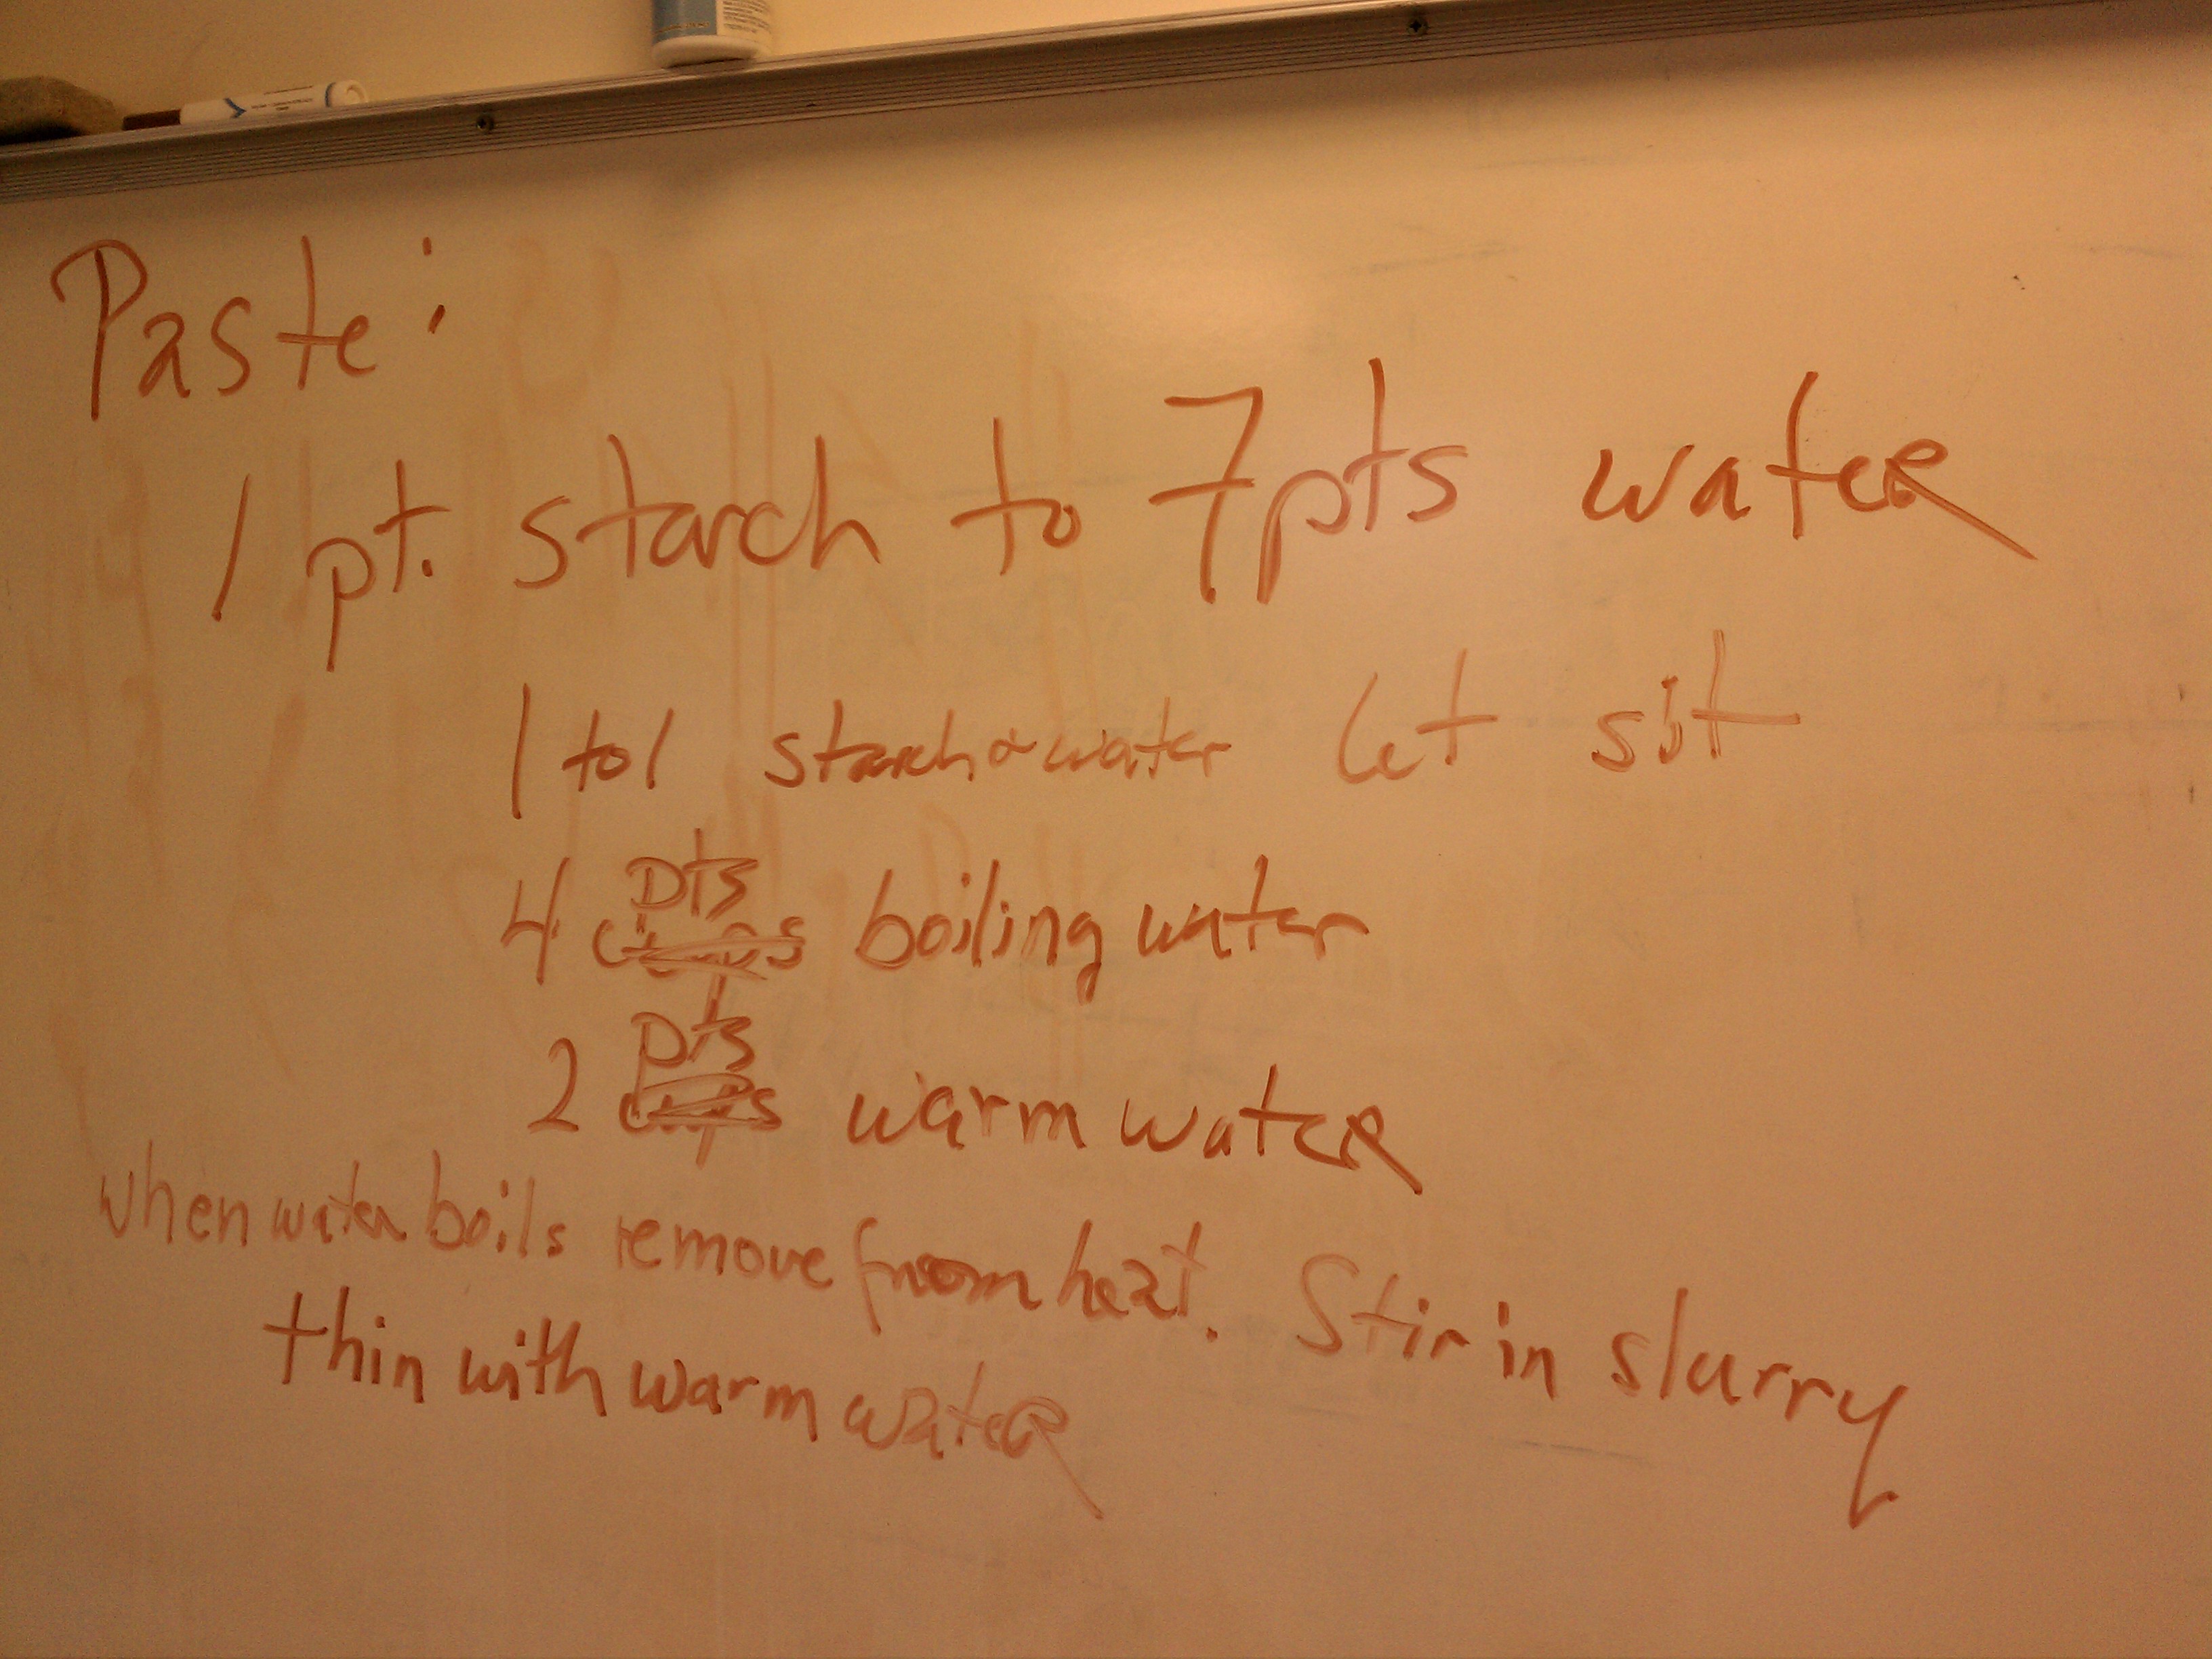 Paste:
1 pt. starch to 7pts water
1 to 1 starch & water let sit
4 pts cups boiling water
2 pts cups warm water
when water boils remove from heat. Stir in slurry
thin with warm water